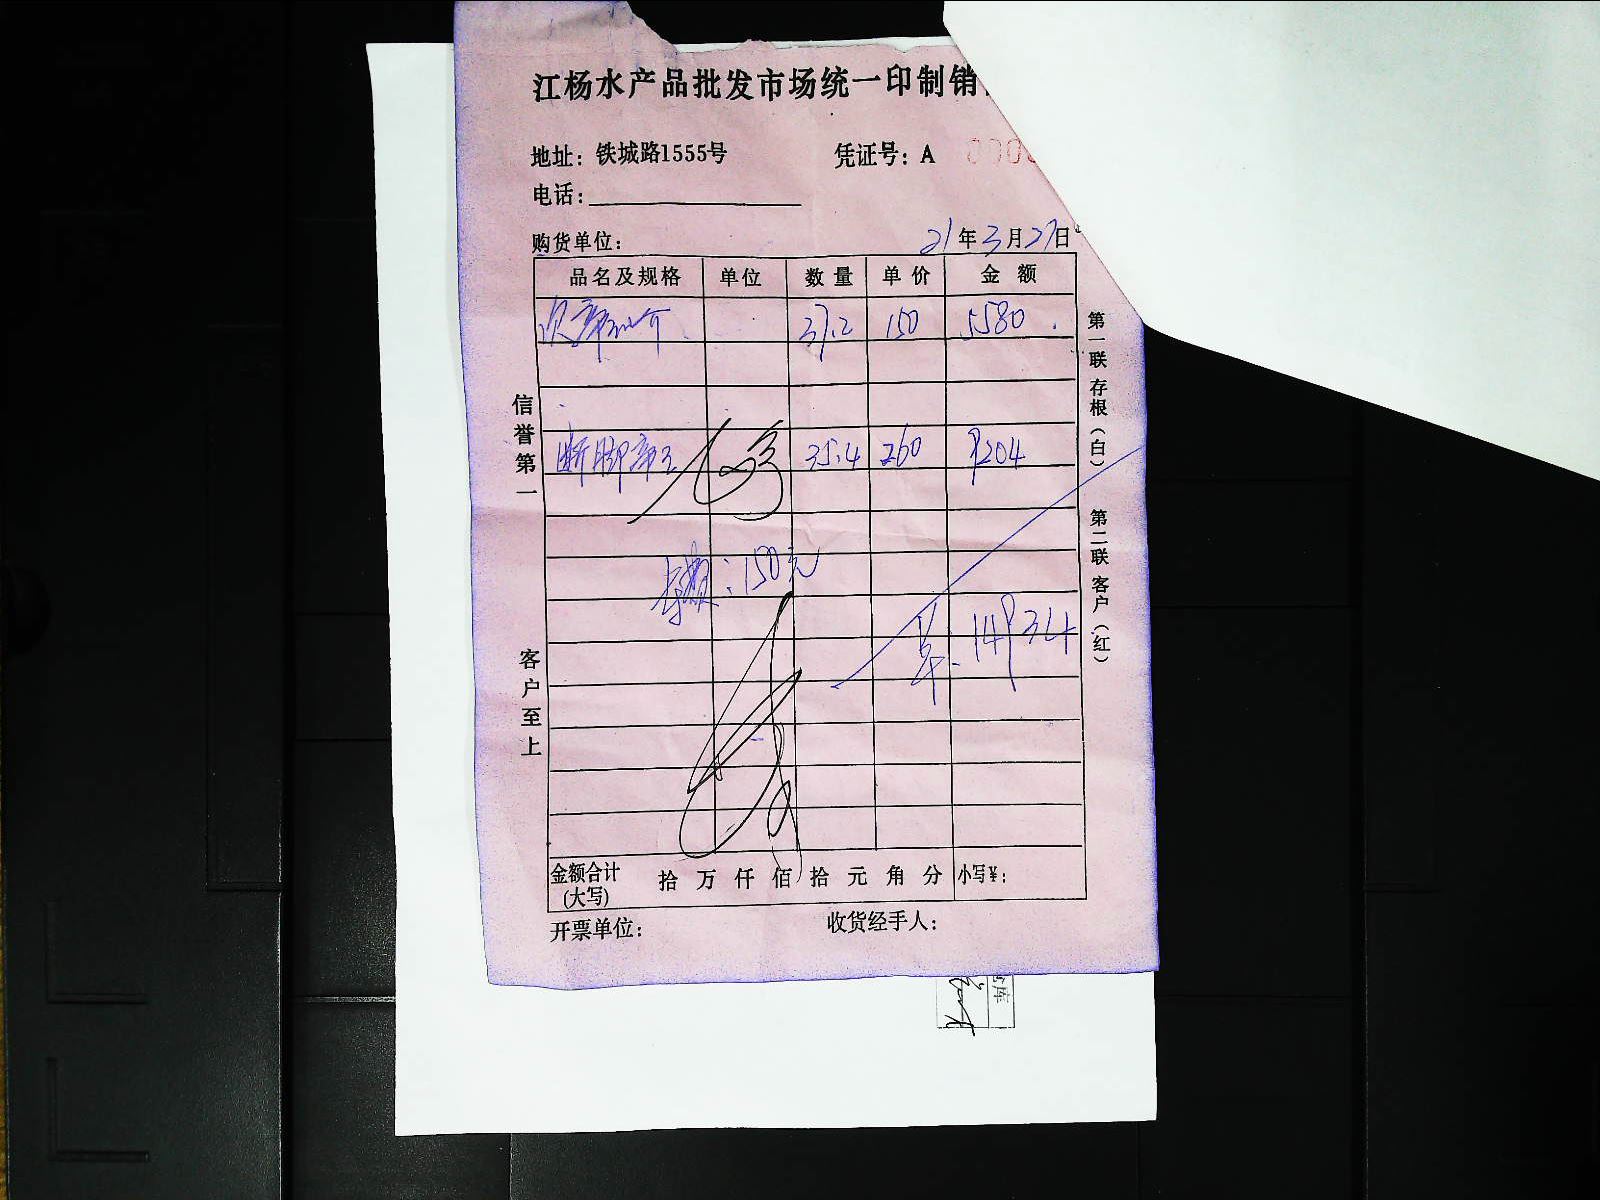 江杨水产品批发市场统一印制销
地址：铁城路1555号 凭证号：A
电话：
购货单位：
21年3月27日
品名及规格 单位 数量 单价 金额
37.2 150 5580
断脚帝王 35.4 260 9204
150元
14934
金额合计(大写) 拾 万 仟 佰 拾 元 角 分 小写¥：
开票单位： 收货经手人：
信誉第一
客户至上
第一联 存根（白）
第二联 客户（红）
库